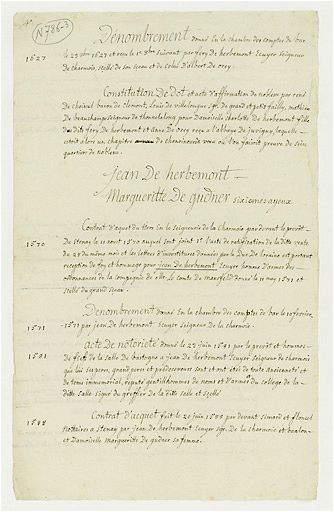 N 786-3
Denombrement donné En la chambre des comptes de bar
1627
le 23 xbre 1627 et receu le 1er xbre suivant par fery de herbemont Ecuyer seigneur
de charmois, scellé de son sceau et de celui d'albert de orey
Constitution De Dot et acte d'affirmation de noblesse par René
de choiseul baron de Clemont, Louis de villelongue sgr de grand et petit failly, mathieu
de beauchamp seigneur de thonnelalong pour Damoiselle charlotte De herbemont fille
Dudit fery De herbemont et Dame De orey reçu a l'abbaye de juvigny laquelle
estoit alors un chapitre de chanoinesses ou l'on faisoit preuve de seize
quartier de Noblesse.
Jean De herbemont
Margueritte De gudner sixiemes ayeux
Contract D'aquet du tiers En la seigneurie de la charmois par devant le prevôt
1570
De stenay le 11 aout 1570 auquel sont joint 1° l'acte de ratification de la ditte vente
du 28 du même mois et les lettres d'investitures données par le Duc De loraine et portant
reception de foy et hommage pour jean de herbemont Ecuyer homme D'armes des
ordonnances de la compagnie de Mr le Comte de Mansfeld donné le 11 may 1571 et
scellé du grand sceau.
Denombrement donné En la chambre des comptes de bar le 10 fevrier
1571
1571 par jean De herbemont Ecuyer Seigneur De la charmois.
acte De notorieté donné le 27 juin 1581 par le prevost et hommes
1581
De fiefs de la salle De bastogne a jean De herbemont Ecuyer Seigneur De charmois
que luy ses pere, grand pere et predecesseurs sont et ont été de toute ancienneté et
de tems immemorial, reputé gentilshommes de noms et d'armes du college de la
ditte salle signé du greffier De la ditte salle et scellé
Contrat D'acquet fait le 20 juin 1588 par devant simard et
1588
Nottaires a stenay par jean De herbemont Ecuyer sgr De la charmois et
et Damoiselle Margueritte De gudner sa femme.